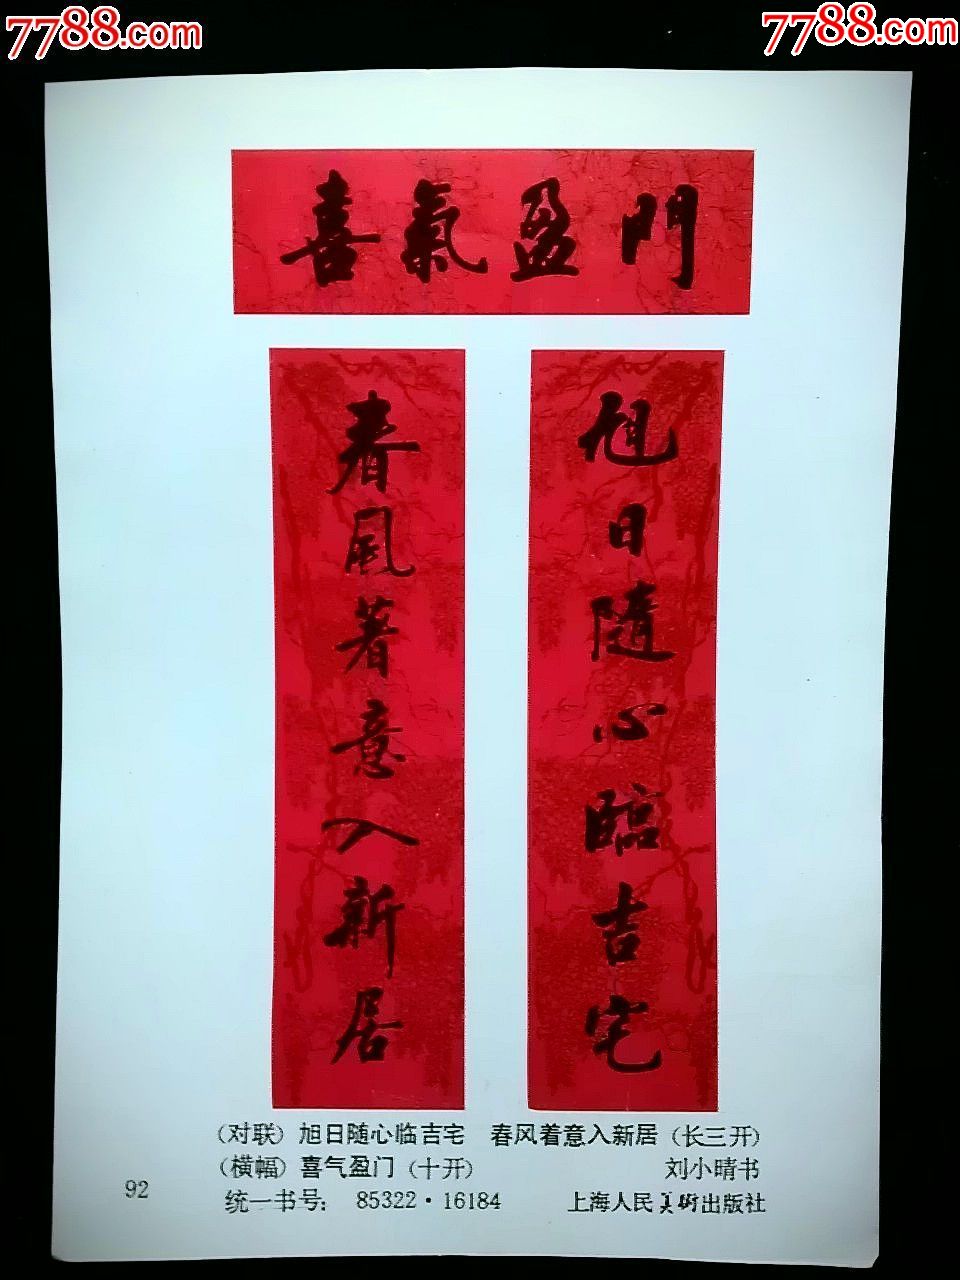 7788.com
7788.com
喜氣盈門
旭日隨心臨吉宅
春風著意入新居
（对联）旭日随心临吉宅 春风着意入新居（长三开）
（横幅）喜气盈门（十开） 刘小晴书
统一书号：85322·16184 上海人民美術出版社
92